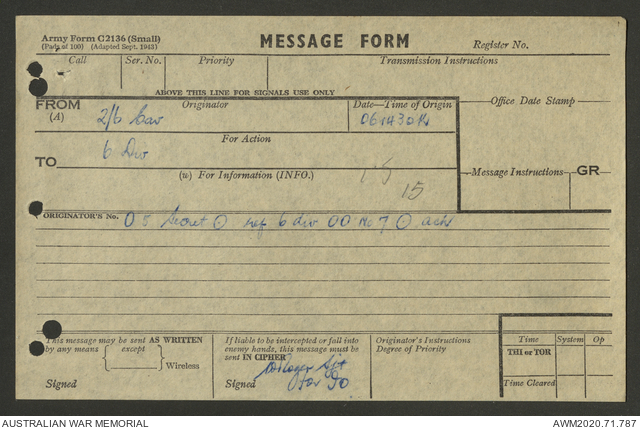 Army Form C2136 (Small)
(Pads of 100) (Adapted Sept. 1943)
MESSAGE FORM
Register No.
Call
Ser. No.
Priority
Transmission Instructions
ABOVE THIS LINE FOR SIGNALS USE ONLY
FROM
(A)
Originator
2/6 Cav
Date—Time of Origin
061430K
Office Date Stamp
For Action
TO
6 Div
(w) For Information (INFO.)
15
Message Instructions
GR
ORIGINATOR'S No.
O 8 Secret O ref 6 div OO No 7 O ack
This message may be sent AS WRITTEN
by any means
except
Wireless
Signed
If liable to be intercepted or fall into
enemy hands, this message must be
sent IN CIPHER
Signed
Lt
for IO
Originator's Instructions
Degree of Priority
Time
System
Op
THI or TOR
Time Cleared
AUSTRALIAN WAR MEMORIAL
AWM2020.71.787